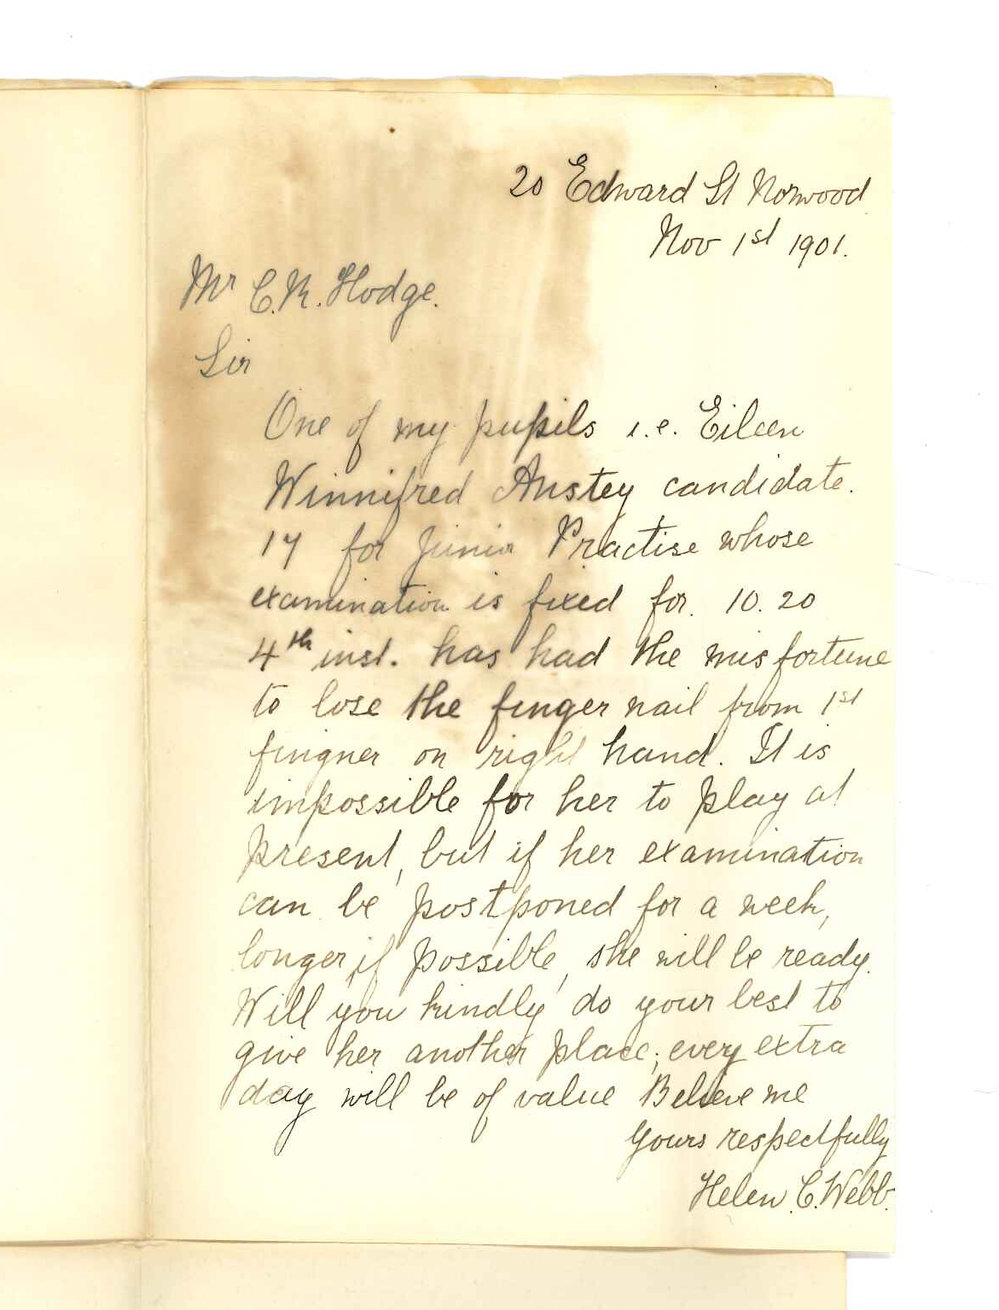 20 Edward St Norwood
Nov 1st 1901.
Mr C. R. Hodge.
Sir
One of my pupils i.e. Eileen
Winnifred Anstey candidate.
17 for Junior Practise whose
examination is fixed for. 10.20
4th inst. has had the misfortune
to lose the finger nail from 1st
fingner on right hand. It is
impossible for her to play at
present, but if her examination
can be postponed for a week,
longer, if possible, she will be ready.
Will you kindly do your best to
give her another place; every extra
day will be of value Believe me
Yours respectfully
Helen. C. Webb.